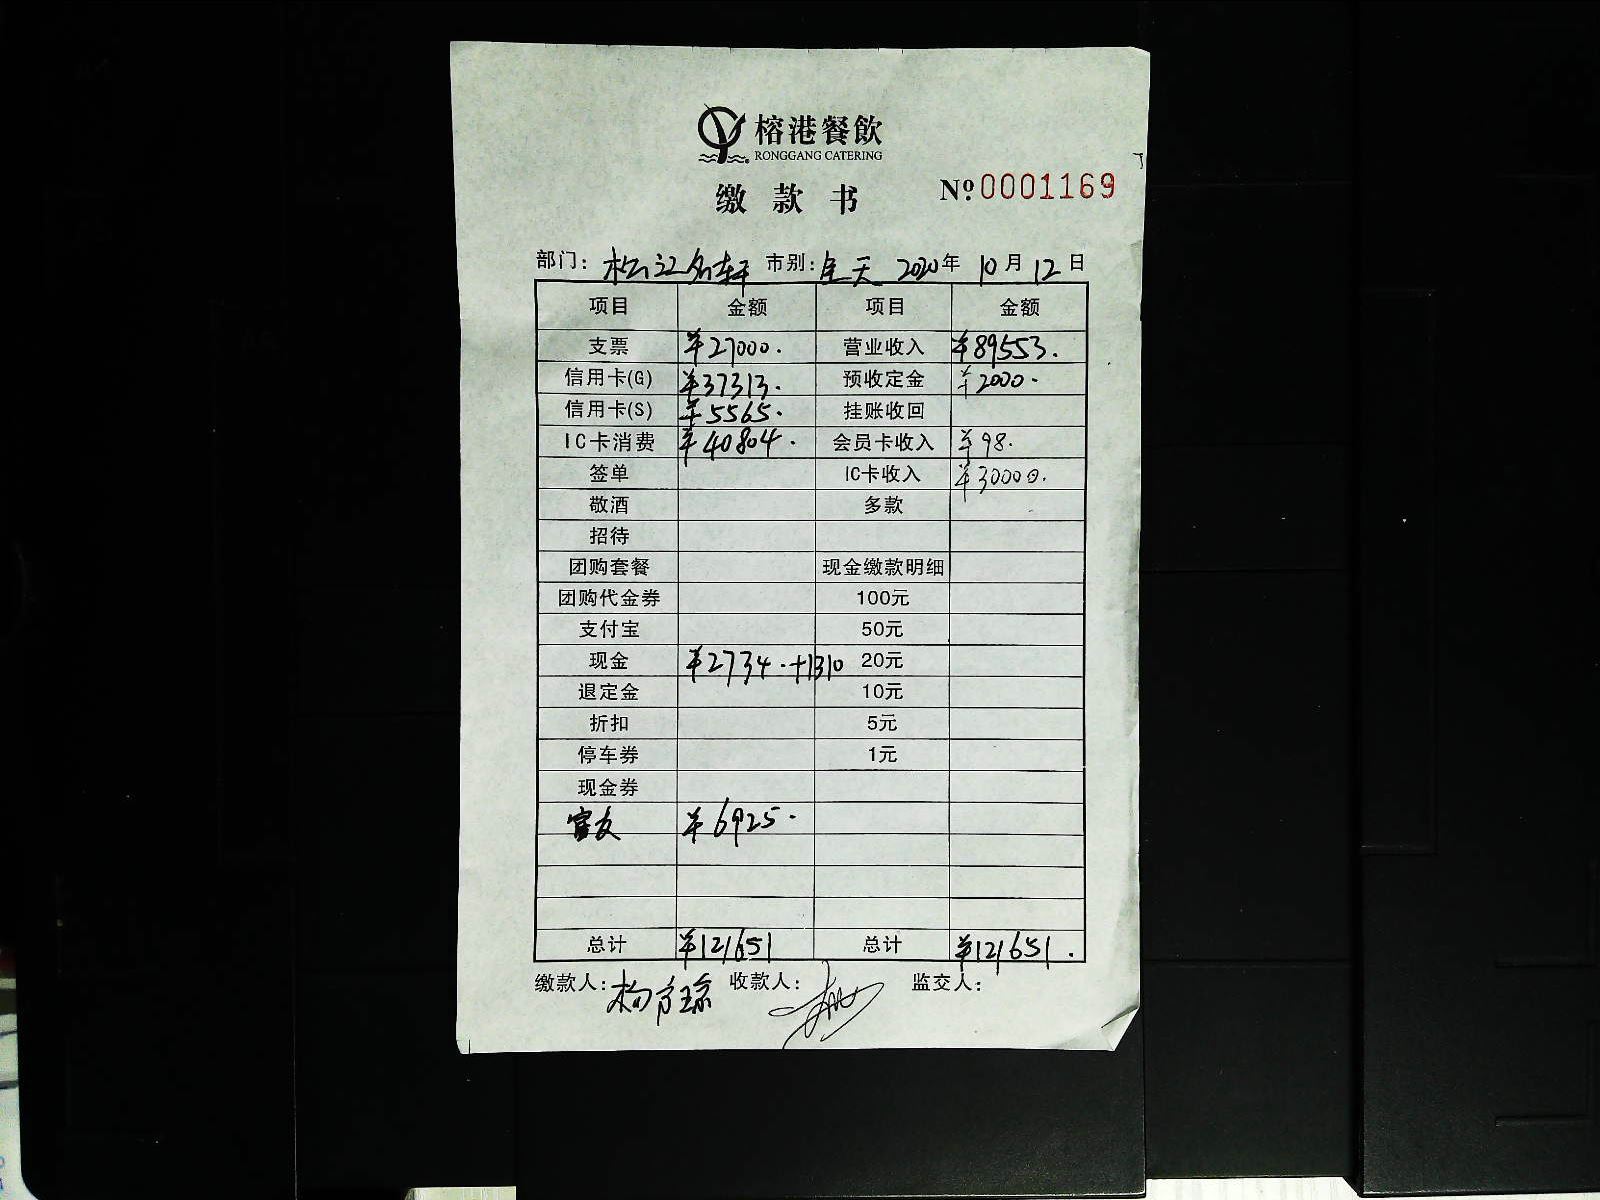 榕港餐飲
RONGGANG CATERING
缴款书 №0001169
部门: 松江名轩 市别: 全天 2020年 10月 12日
项目 金额 项目 金额
支票 ¥27000. 营业收入 ¥89553.
信用卡(G) ¥37313. 预收定金 ¥2000.
信用卡(S) ¥5565. 挂账收回
IC卡消费 ¥40804. 会员卡收入 ¥98.
签单 IC卡收入 ¥30000.
敬酒 多款
招待
团购套餐 现金缴款明细
团购代金券 100元
支付宝 50元
现金 ¥2734.+1310 20元
退定金 10元
折扣 5元
停车券 1元
现金券
富友 ¥6925.
总计 ¥121651 总计 ¥121651.
缴款人: 收款人: 监交人: